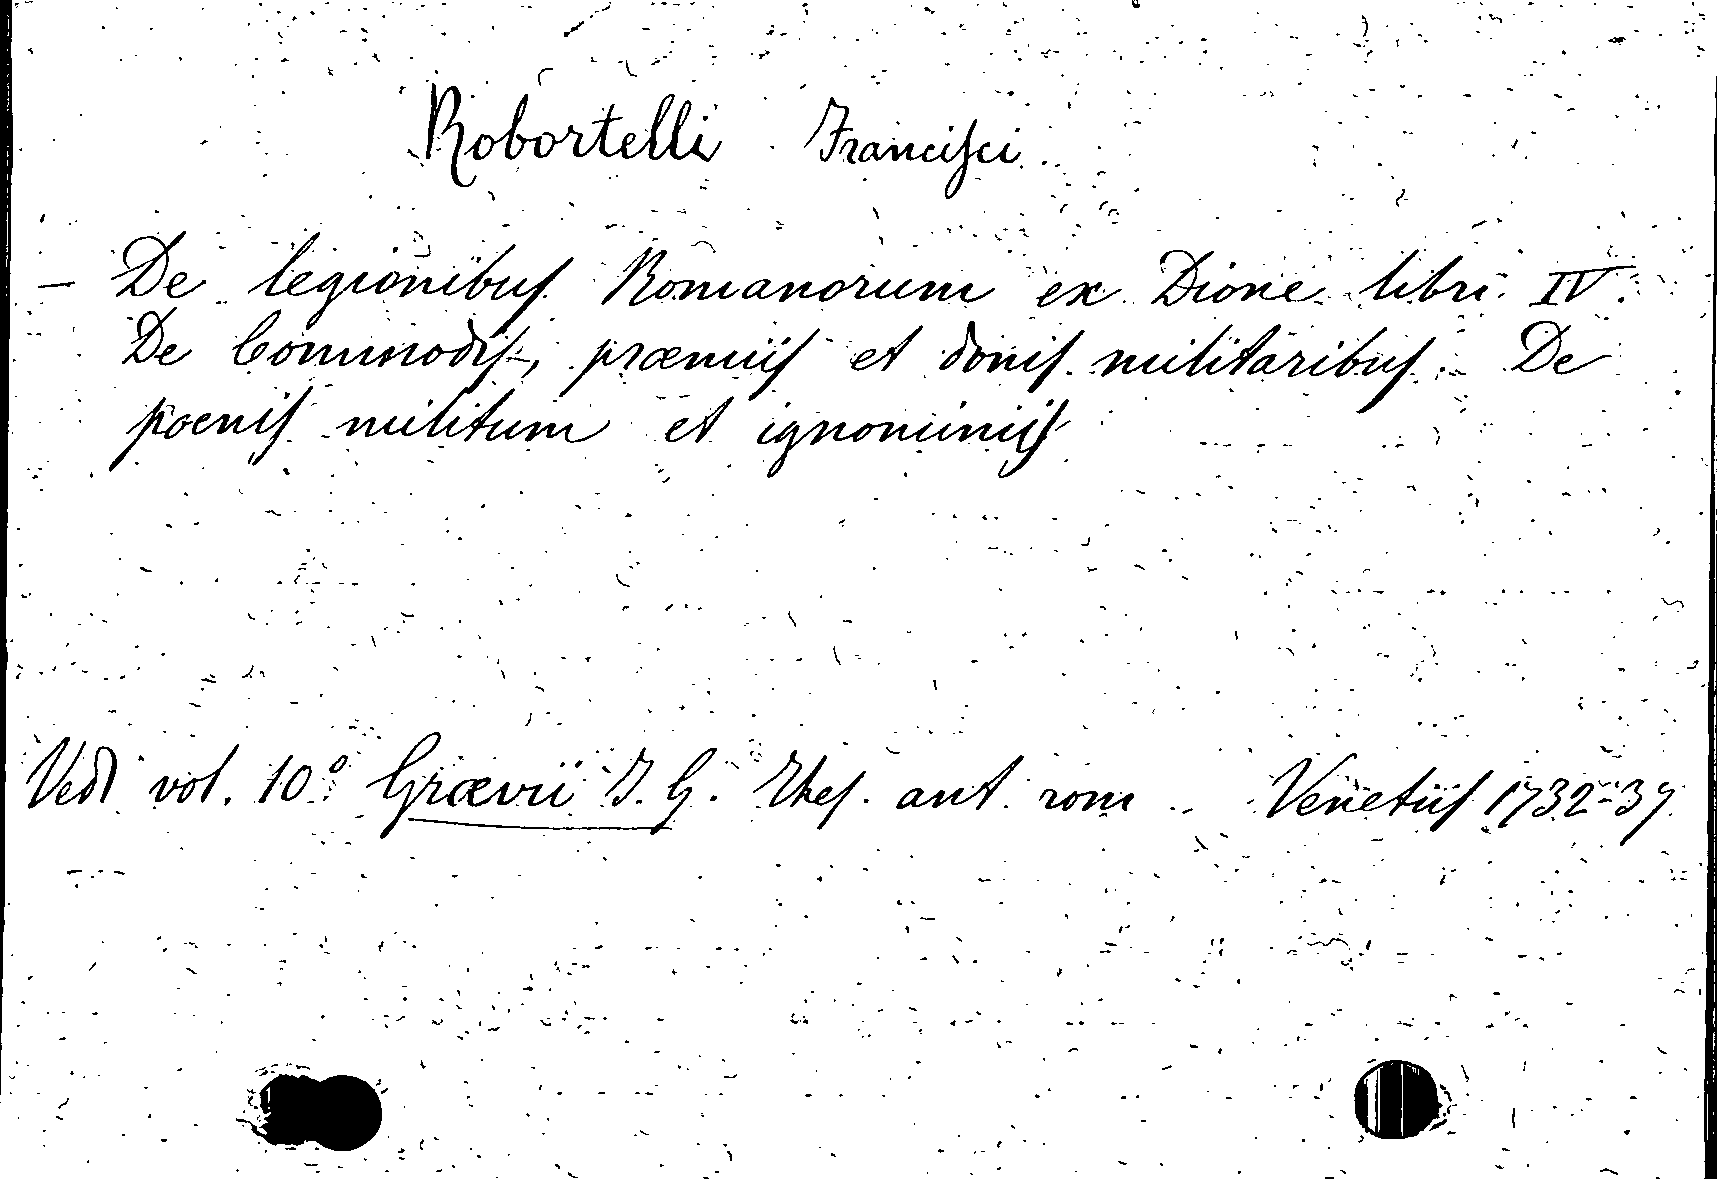 Robortelli Francisci
- De legionibus Romanorum ex Dione libri IV.
De Commodis, præmiis et donis militaribus. De
poenis militum et ignominiis
Vedi vol. 10º Grævii J. G. Thes. ant. rom. Venetiis 1732-37.